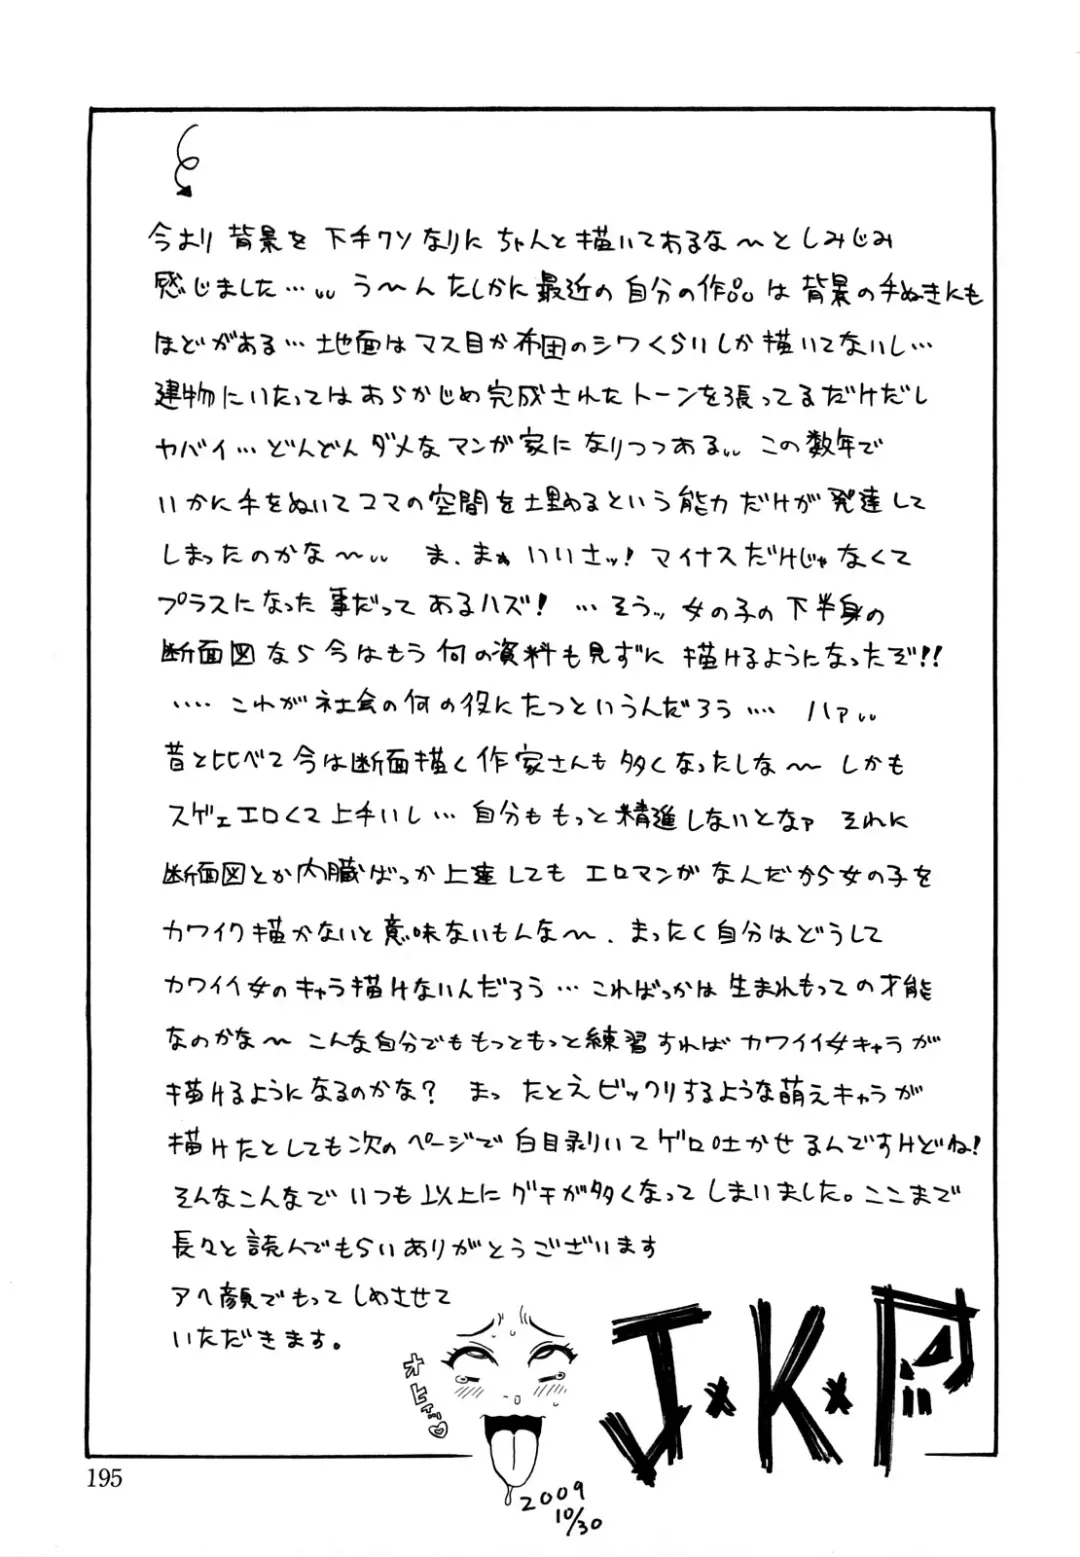 今より背景を下手クソなりにちゃんと描いてあるな〜としみじみ
感じました…､､ う〜んたしかに最近の自分の作品は背景の手ぬきにも
ほどがある…地面はマス目か布団のシワくらいしか描いてないし…
建物にいたってはあらかじめ完成されたトーンを張ってるだけだし
ヤバイ…どんどんダメなマンガ家になりつつある､､ この数年で
いかに手をぬいてコマの空間を埋めるという能力だけが発達して
しまったのかな〜､､ ま、まぁいいさッ! マイナスだけじゃなくて
プラスになった事だってあるハズ! …そうッ 女の子の下半身の
断面図なら今はもう何の資料も見ずに描けるようになったぞ!!
‥‥これが社会の何の役にたつというんだろう‥‥ ハァ､､
昔と比べて今は断面描く作家さんも多くなったしな〜 しかも
スゲェエロくて上手いし…自分ももっと精進しないとなァ それに
断面図とか内臓ばっか上達してもエロマンガなんだから女の子を
カワイク描かないと意味ないもんな〜、まったく自分はどうして
カワイイ女のキャラ描けないんだろう…こればっかは生まれもっての才能
なのかな〜 こんな自分でももっともっと練習すればカワイイ女キャラが
描けるようになるのかな? まっ たとえビックリするような萌えキャラが
描けたとしても次のページで白目剥いてゲロ吐かせるんですけどね!
そんなこんなでいつも以上にグチが多くなってしまいました。ここまで
長々と読んでもらいありがとうございます
アヘ顔でもってしめさせて
いただきます。
オヒょっ♡
J★K★P
2009
10/30
195